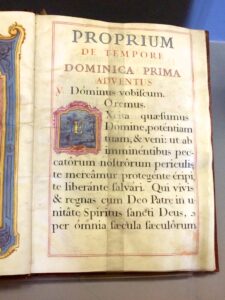 PROPRIUM
DE TEMPORE
DOMINICA PRIMA
ADVENTUS
V. Dóminus vobíscum.
Oremus.
EXcita quæsumus
Domine, potentiam
tuam, & veni: ut ab
imminéntibus pec-
catórum nostrórum perículis,
te mereámur protegénte éripi,
te liberánte salvári. Qui vivis
& regnas cum Deo Patre in u-
nitáte Spiritus sancti Deus,
per ómnia sæcula sæculórum